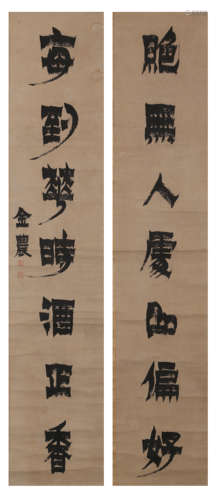 絶無人處山偏好
每到華時酒正香
金農